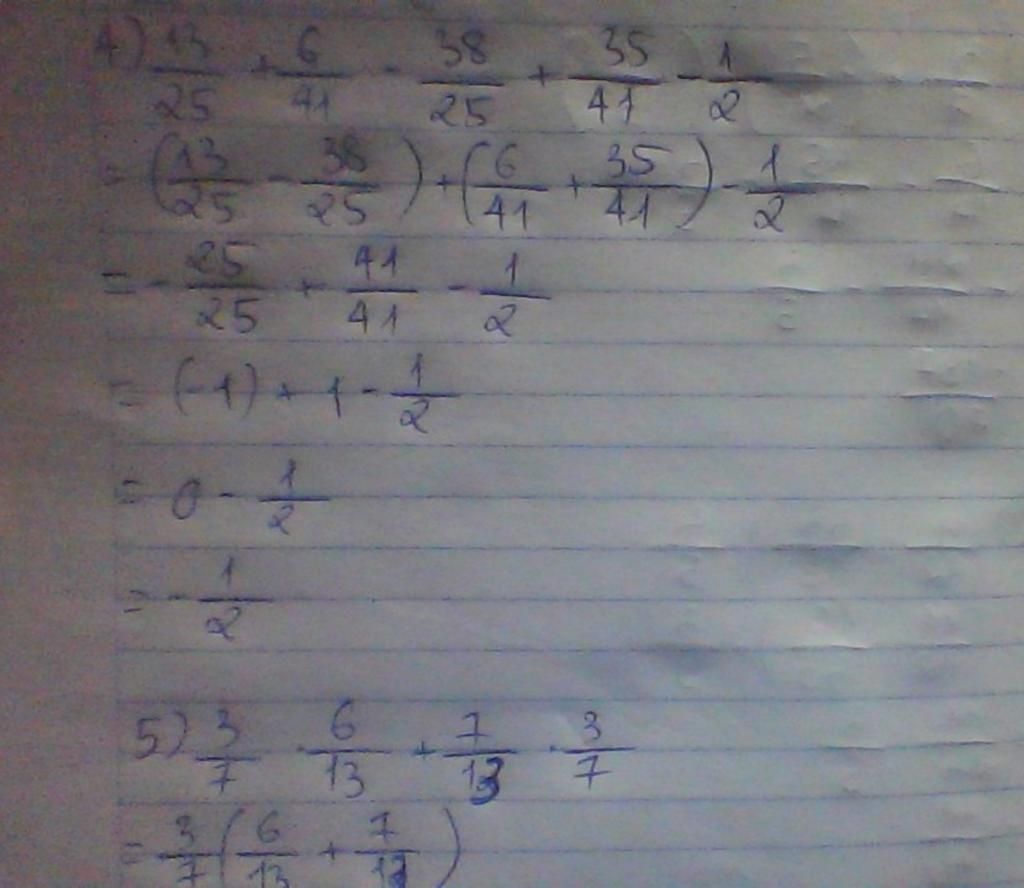 4) 13/25 + 6/41 - 38/25 + 35/41 - 1/2
= (13/25 - 38/25) + (6/41 + 35/41) - 1/2
= - 25/25 + 41/41 - 1/2
= (-1) + 1 - 1/2
= 0 - 1/2
= - 1/2
5) 3/7 . 6/13 + 7/13 . 3/7
= 3/7 (6/13 + 7/13)